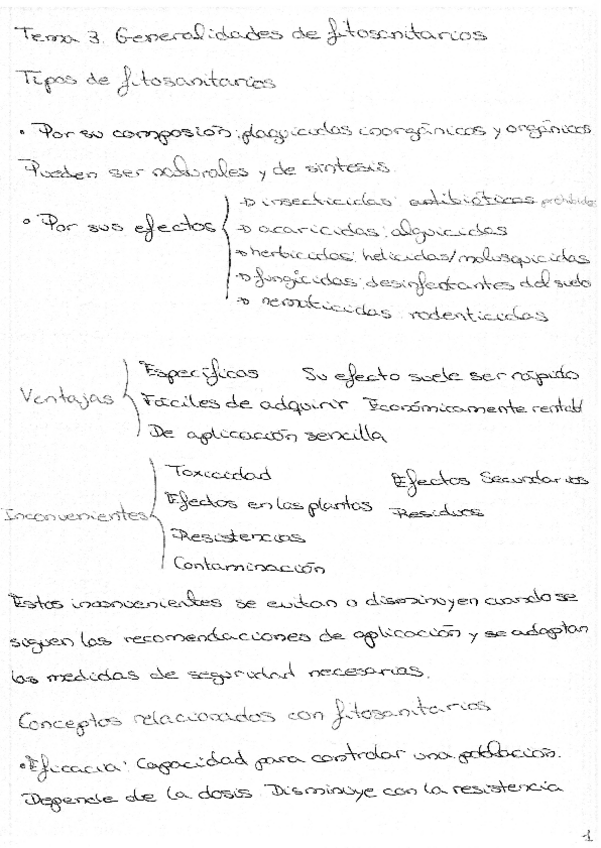 Tema 3. Generalidades de fitosanitarios
Tipos de fitosanitarios
• Por su composión: plaguicidas inorgánicos y orgánicos
Pueden ser naturales y de síntesis.
• Por sus efectos
→ insecticidas: antibióticos prohibido
→ acaricidas: alguicidas
→ herbicidas: helicidas/molusquicidas
→ fungicidas: desinfectantes del suelo
→ nematicidas: rodenticidas
Ventajas
Específicas Su efecto suele ser rápido
Fáciles de adquirir Económicamente rentabl
De aplicación sencilla
Inconvenientes
Toxicidad Efectos Secundarios
Efectos en las plantas Residuos
Resistencias
Contaminación
Estos inconvenientes se evitan o disminuyen cuando se
siguen las recomendaciones de aplicación y se adoptan
las medidas de seguridad necesarias.
Conceptos relacionados con fitosanitarios
• Eficacia: Capacidad para controlar una población.
Depende de la dosis. Disminuye con la resistencia
1